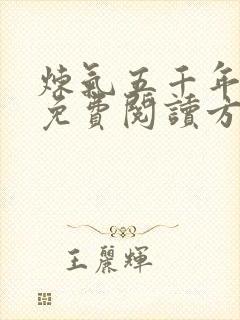 煉氣五千年
免費閱讀方
王麗輝